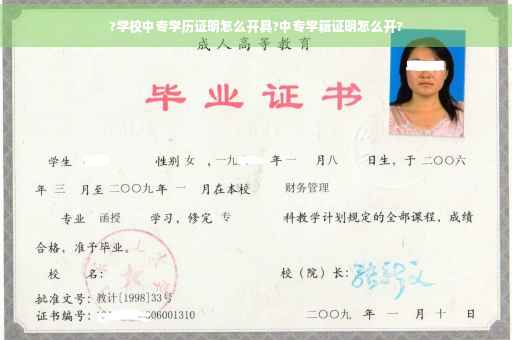 ?学校中专学历证明怎么开具?中专学籍证明怎么开?
成人高等教育
毕业证书
学生 性别 女 ，一九 年 一 月八 日生，于 二〇〇六
年 三 月至 二〇〇九 年 一 月在本校 财务管理
专业 函授 学习，修完 专 科教学计划规定的全部课程，成绩
合格，准予毕业。
校 名： 校（院）长：
批准文号：教计[1998]33号
证书编号： 06001310 二〇〇九 年 一 月 十 日